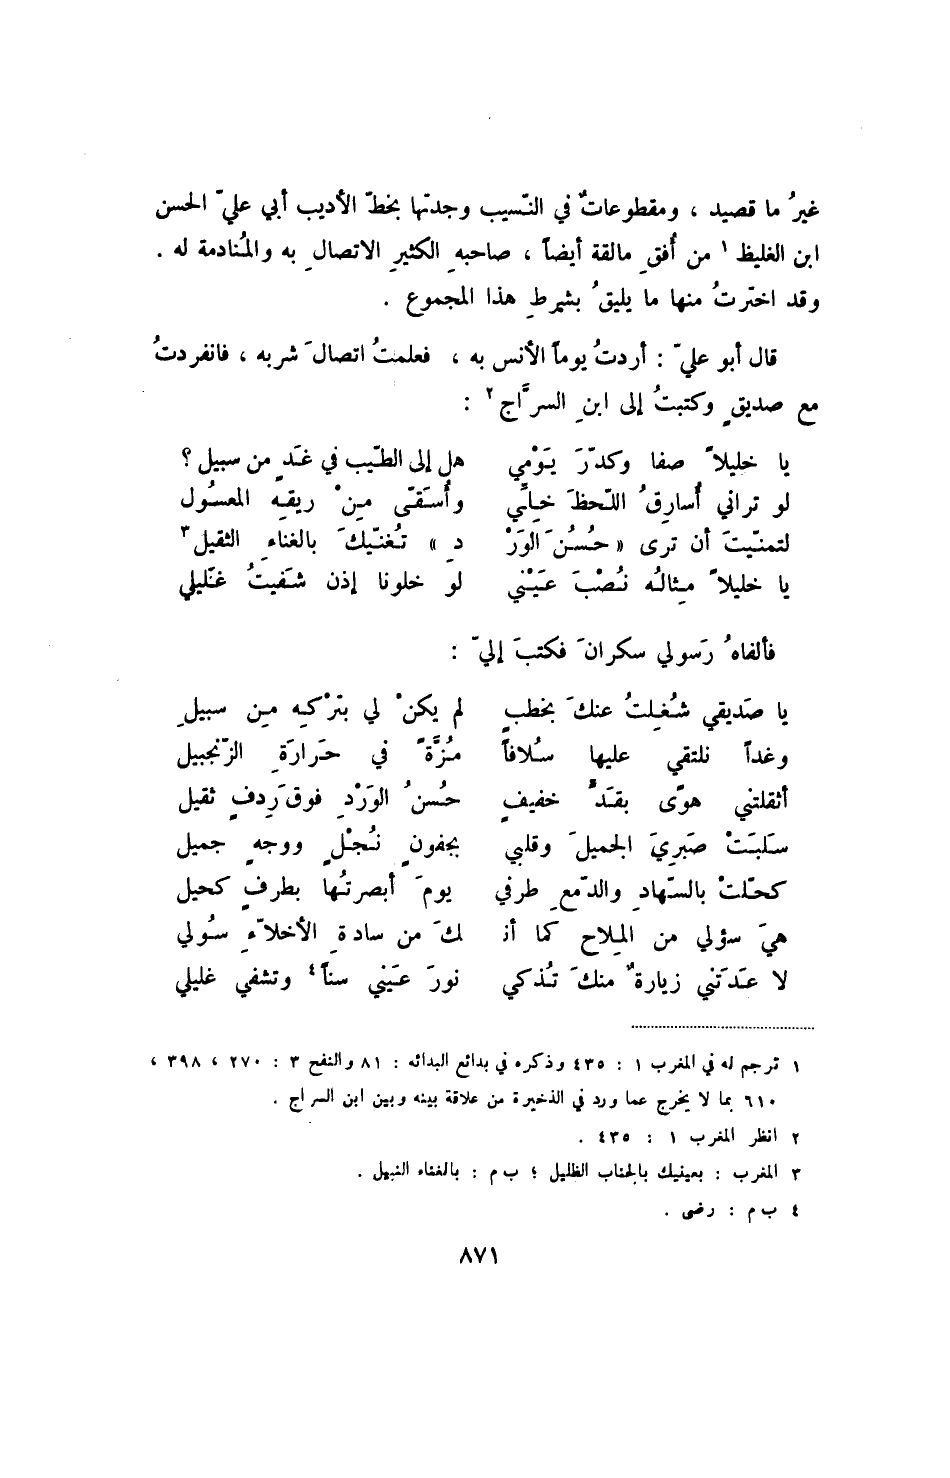 غيرُ ما قصيد ، ومقطوعاتٌ في النّسيب وجدتها بخطّ الأديب أبي عليّ الحسن
ابن الغليظ ١ من أُفقِ مالقة أيضاً ، صاحبهِ الكثيرِ الاتصالِ به والمُنادمة له .
وقد اخترتُ منها ما يليقُ بشرطِ هذا المجموع .
قال أبو عليّ : أردتُ يوماً الأنس به ، فعلمتُ اتصالَ شربه ، فانفردتُ
مع صديقٍ وكتبتُ إلى ابنِ السرَّاج ٢ :
يا خليلاً صفا وكدّرَ يَوْمي هل إلى الطّيب في غَدٍ من سبيل ؟
لو تراني أُسارِقُ اللّحظَ خِلّي وأُسَقّى مِنْ ريقِه المعسُول
لتمنّيتَ أن ترى « حُسُنَ الوَرْ دِ » تُغنّيكَ بالغناءِ الثقيل ٣
يا خليلاً مِثالُه نُصْبَ عَيْني لو خلونا إذن شفَيتُ غَليلي
فألفاهُ رَسولي سكرانَ فكتبَ إليّ :
يا صَديقي شُغِلتُ عنكَ بخطبٍ لم يكنْ لي بتَرْكِه مِن سبيلِ
وغداً نلتقي عليها سُلافاً مُزَّةً في حَرارَةِ الزّنجبيل
أثقلتني هوًى بقَدٍّ خفيفٍ حُسنُ الوَرْدِ فوقَ رِدفٍ ثقيل
سَلبَتْ صَبرِيَ الجميلَ وقلبي بجفونٍ نُجْلٍ ووجهٍ جميل
كحّلتْ بالسّهادِ والدّمعِ طرفي يومَ أبصرتُها بطرفٍ كحيل
هيَ سؤلي من المِلاح كما أنـ ـكَ من سادةِ الأخلاّءِ سُولي
لا عدَتني زيارةٌ منكَ تُذكي نورَ عَيْني سناً ٤ وتشفي غليلي
١ ترجم له في المغرب ١ : ٤٣٥ وذكره في بدائع البدائه : ٨١ والنفح ٣ : ٢٧٠ ، ٣٩٨ ،
٦١٠ بما لا يخرج عما ورد في الذخيرة من علاقة بينه وبين ابن السراج .
٢ انظر المغرب ١ : ٤٣٥ .
٣ المغرب : بعينيك بالجناب الظليل ؛ ب م : بالغناء النبيل .
٤ ب م : رضى .
٨٧١